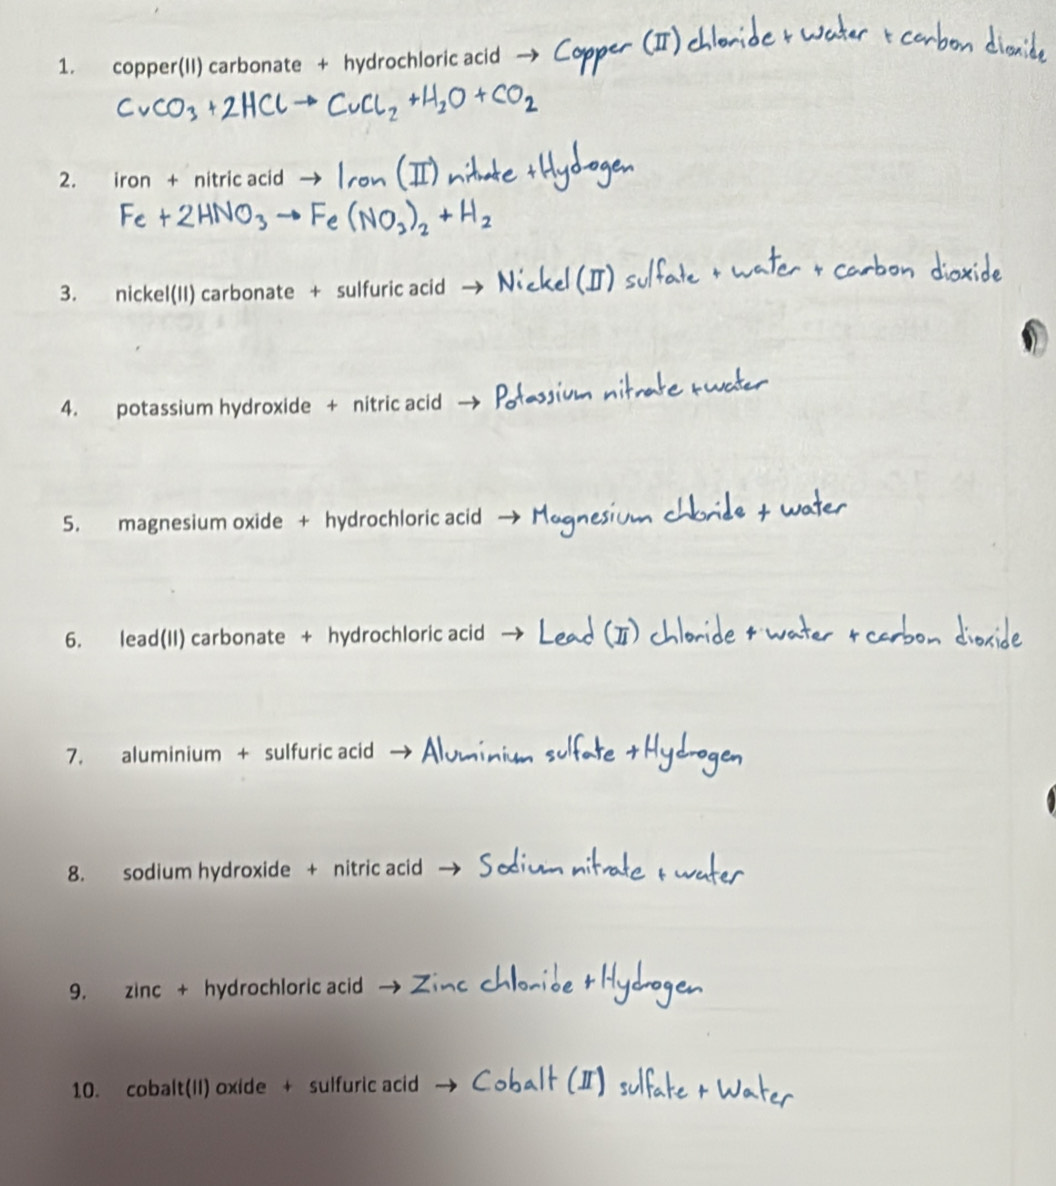 1. copper(II) carbonate + hydrochloric acid → Copper (II) chloride + water + carbon dioxide
CuCO₃ + 2HCl → CuCl₂ + H₂O + CO₂
2. iron + nitric acid → Iron (II) nitrate + Hydrogen
Fe + 2HNO₃ → Fe(NO₃)₂ + H₂
3. nickel(II) carbonate + sulfuric acid → Nickel (II) sulfate + water + carbon dioxide
4. potassium hydroxide + nitric acid → Potassium nitrate + water
5. magnesium oxide + hydrochloric acid → Magnesium chloride + water
6. lead(II) carbonate + hydrochloric acid → Lead (II) chloride + water + carbon dioxide
7. aluminium + sulfuric acid → Aluminium sulfate + Hydrogen
8. sodium hydroxide + nitric acid → Sodium nitrate + water
9. zinc + hydrochloric acid → Zinc chloride + Hydrogen
10. cobalt(II) oxide + sulfuric acid → Cobalt (II) sulfate + Water